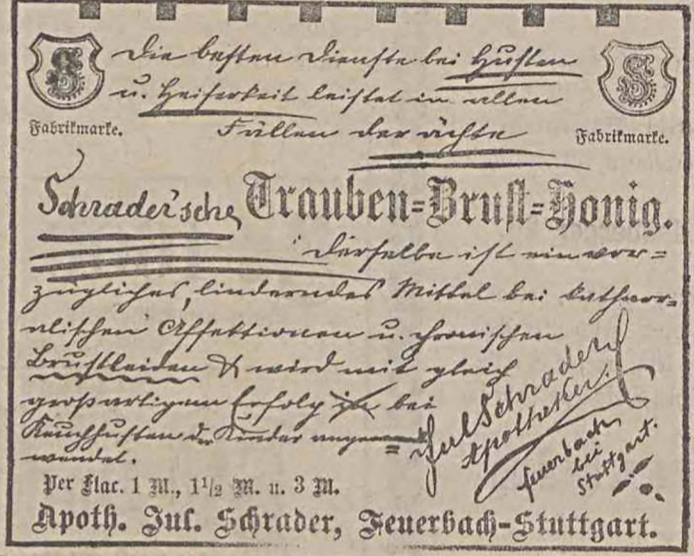 S
S
Die besten Dienste bei Husten
u. Heiserkeit leistet in allen
Fällen der ächte
Fabrikmarke.
Fabrikmarke.
Schrader'sche Trauben-Brust-Honig.
Derselbe ist ein vor-
zügliches, linderndes Mittel bei kathar-
alischen Affektionen u. chronischen
Brustleiden & wird mit gleich
großartigem Erfolg bei
Keuchhusten d. Kinder ange-
wendet.
Jul Schrader
Apotheker.
Feuerbach
bei
Stuttgart.
Per Flac. 1 M., 1½ M. u. 3 M.
Apoth. Jul. Schrader, Feuerbach-Stuttgart.